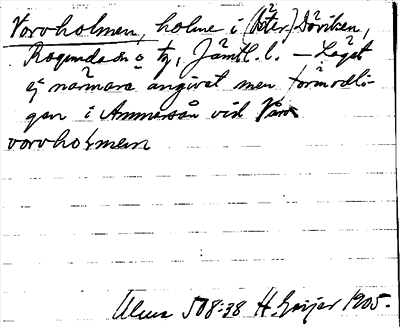 Vorvholmen, holme i (Öster) Övsjön,
Ragunda sn o tg, Jämtl. l. – Läget
ej närmare angivet men förmodli-
gen i Ammerån vid
vorvholmen
Ulma 508:38 H. Geijer 1905.